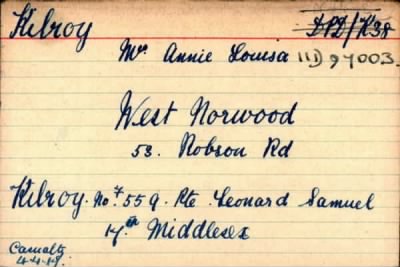 Kilroy DPD/K38
Mrs Annie Louisa 11D 97003.
West Norwood
53. Robson Rd
Kilroy. No. 7559. Pte Leonard Samuel
Middlesex
Casualty
4.4.18.